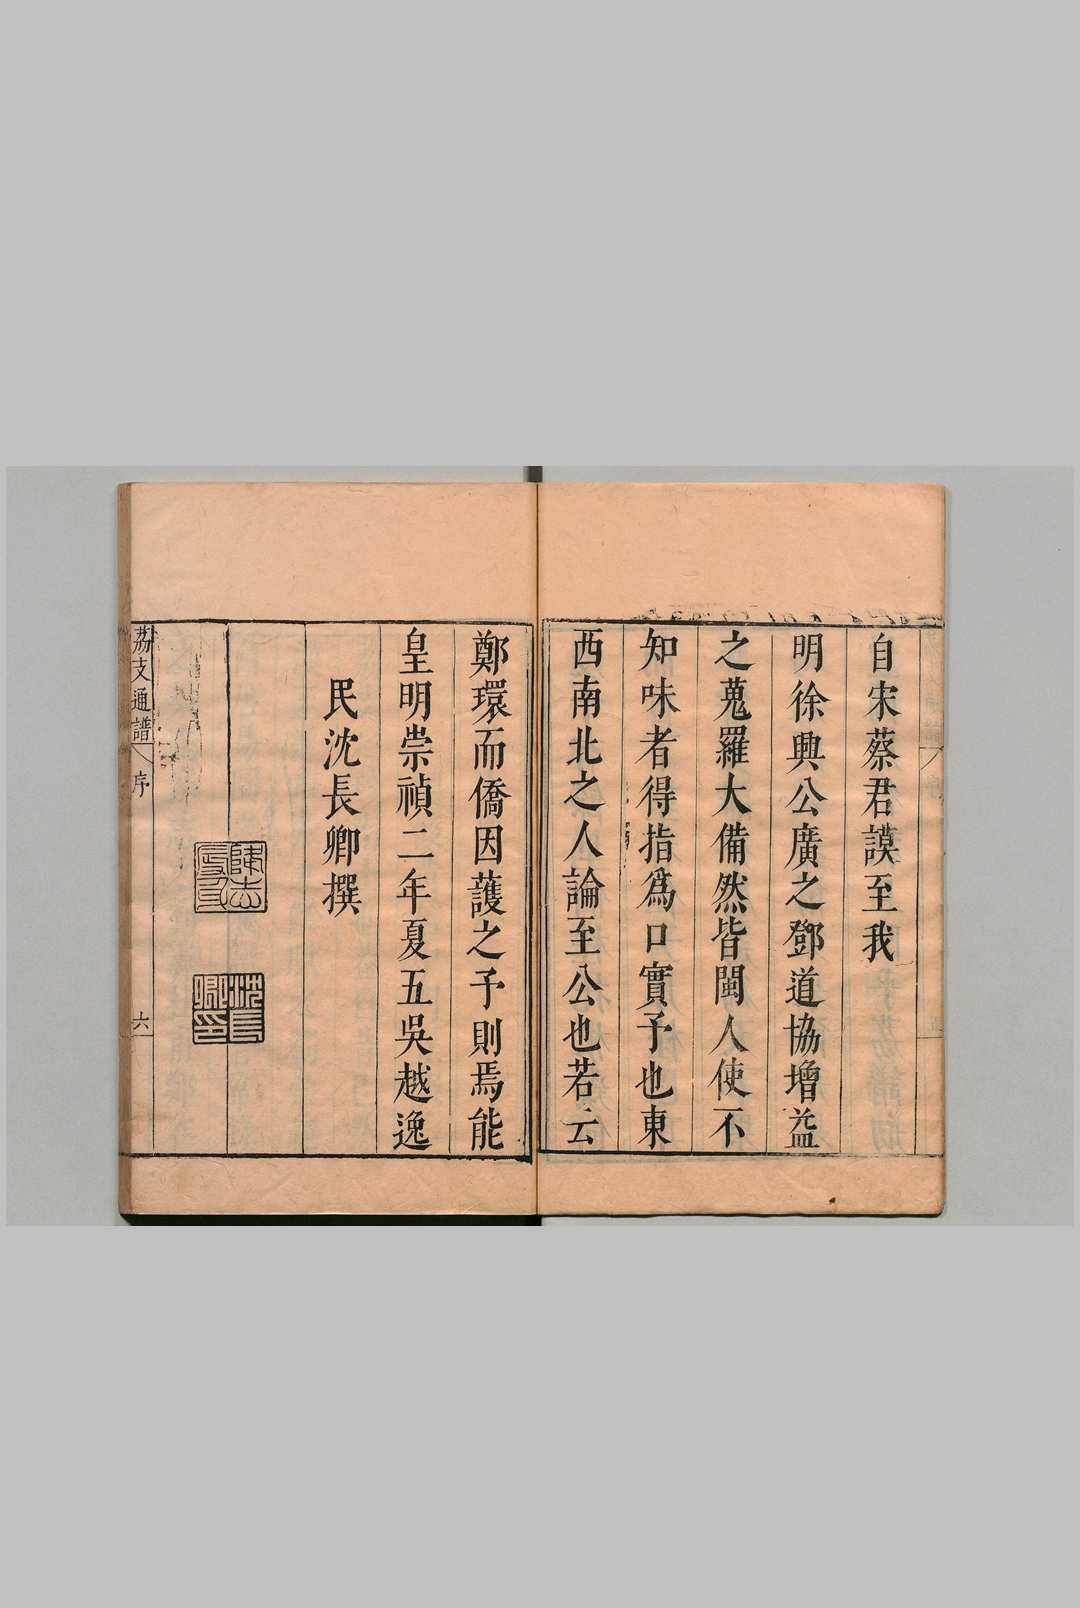 自宋蔡君謨至我
明徐興公廣之鄧道協增益
之蒐羅大備然皆閩人使不
知味者得指爲口實予也東
西南北之人論至公也若云
鄭環而僑因護之予則焉能
皇明崇禎二年夏五吳越逸
民沈長卿撰
荔支通譜
序
六
沈長卿印